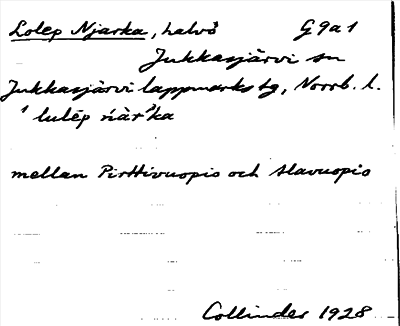 Lolep Njarka, halvö G9a1
Jukkasjärvi sn
Jukkasjärvi lappmarks tg, Norrb. l.
ˈlulēp ńàrˈka
mellan Pirttivuopio och Alavuopio
Collinder 1928